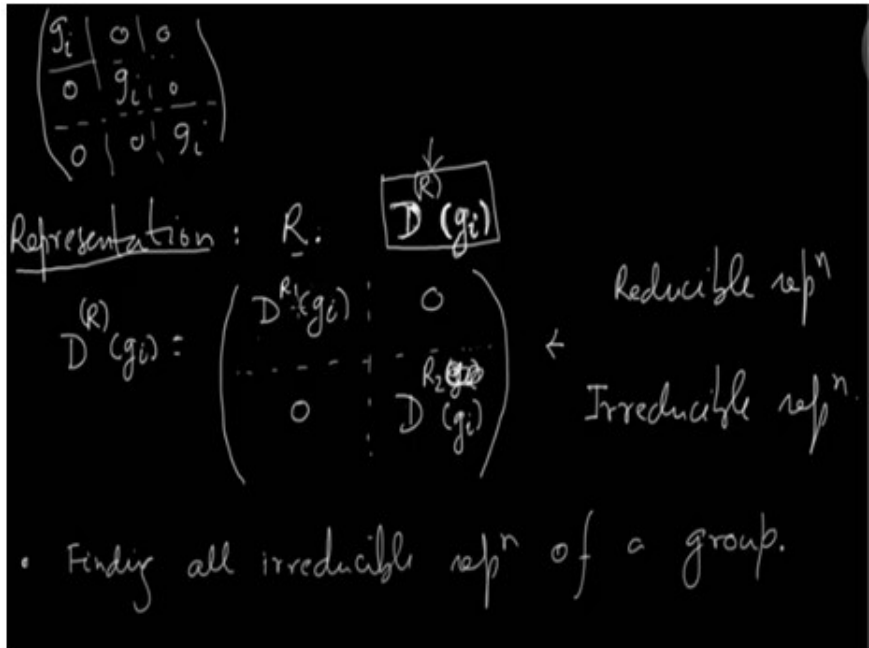 gᵢ | 0 | 0
0 gᵢ 0
0 | 0 | gᵢ
Representation : R. D⁽ᴿ⁾(gᵢ)
D⁽ᴿ⁾(gᵢ) = D^R₁(gᵢ) 0 ← Reducible repⁿ
0 D^R₂(gᵢ) Irreducible repⁿ.
• Finding all irreducible repⁿ of a group.